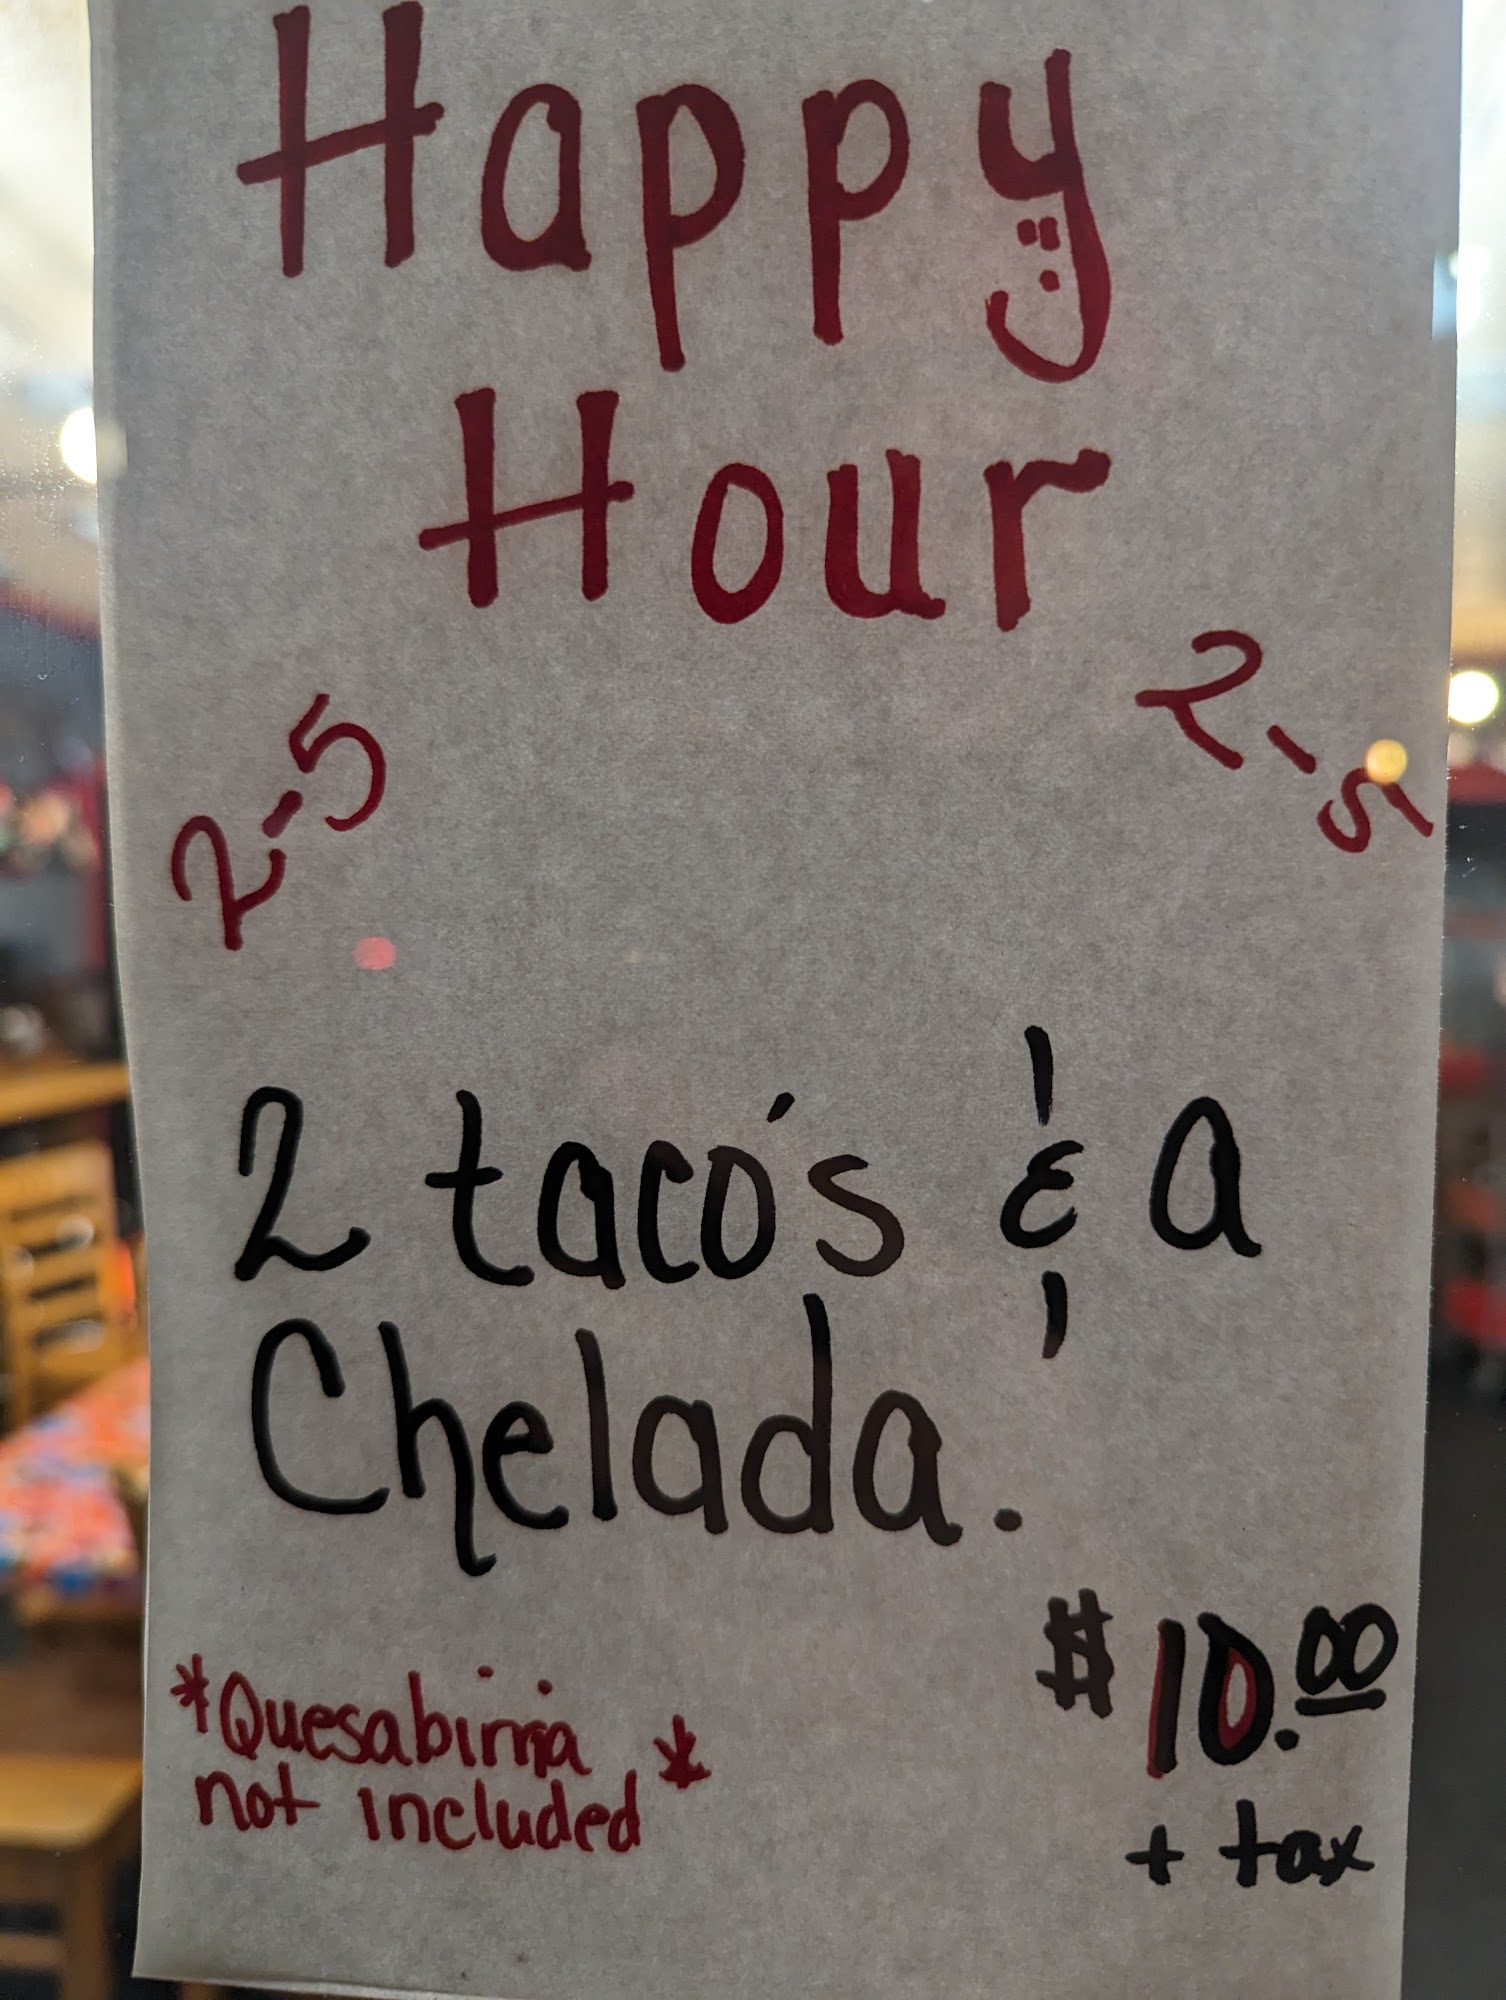 Happy
Hour
2-5
2-5
2 taco's & a
Chelada.
$10.00
+ tax
*Quesabirria
not included*